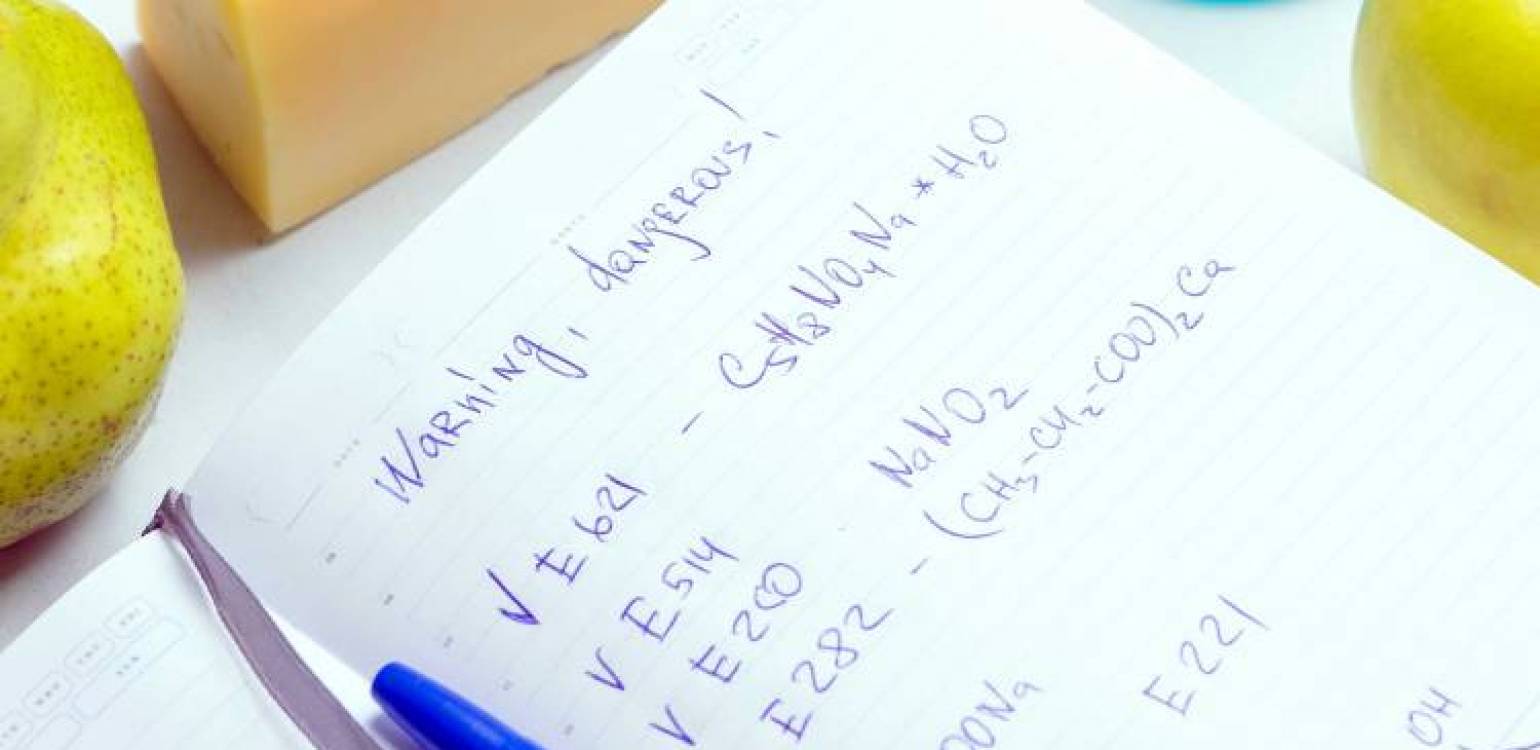 Warning, dangerous!
V E621 - C5H8NO4Na * H2O
V E514
V E200 NaNO2
E282 - (CH3-CH2-COO)2Ca
OONa E221
OH